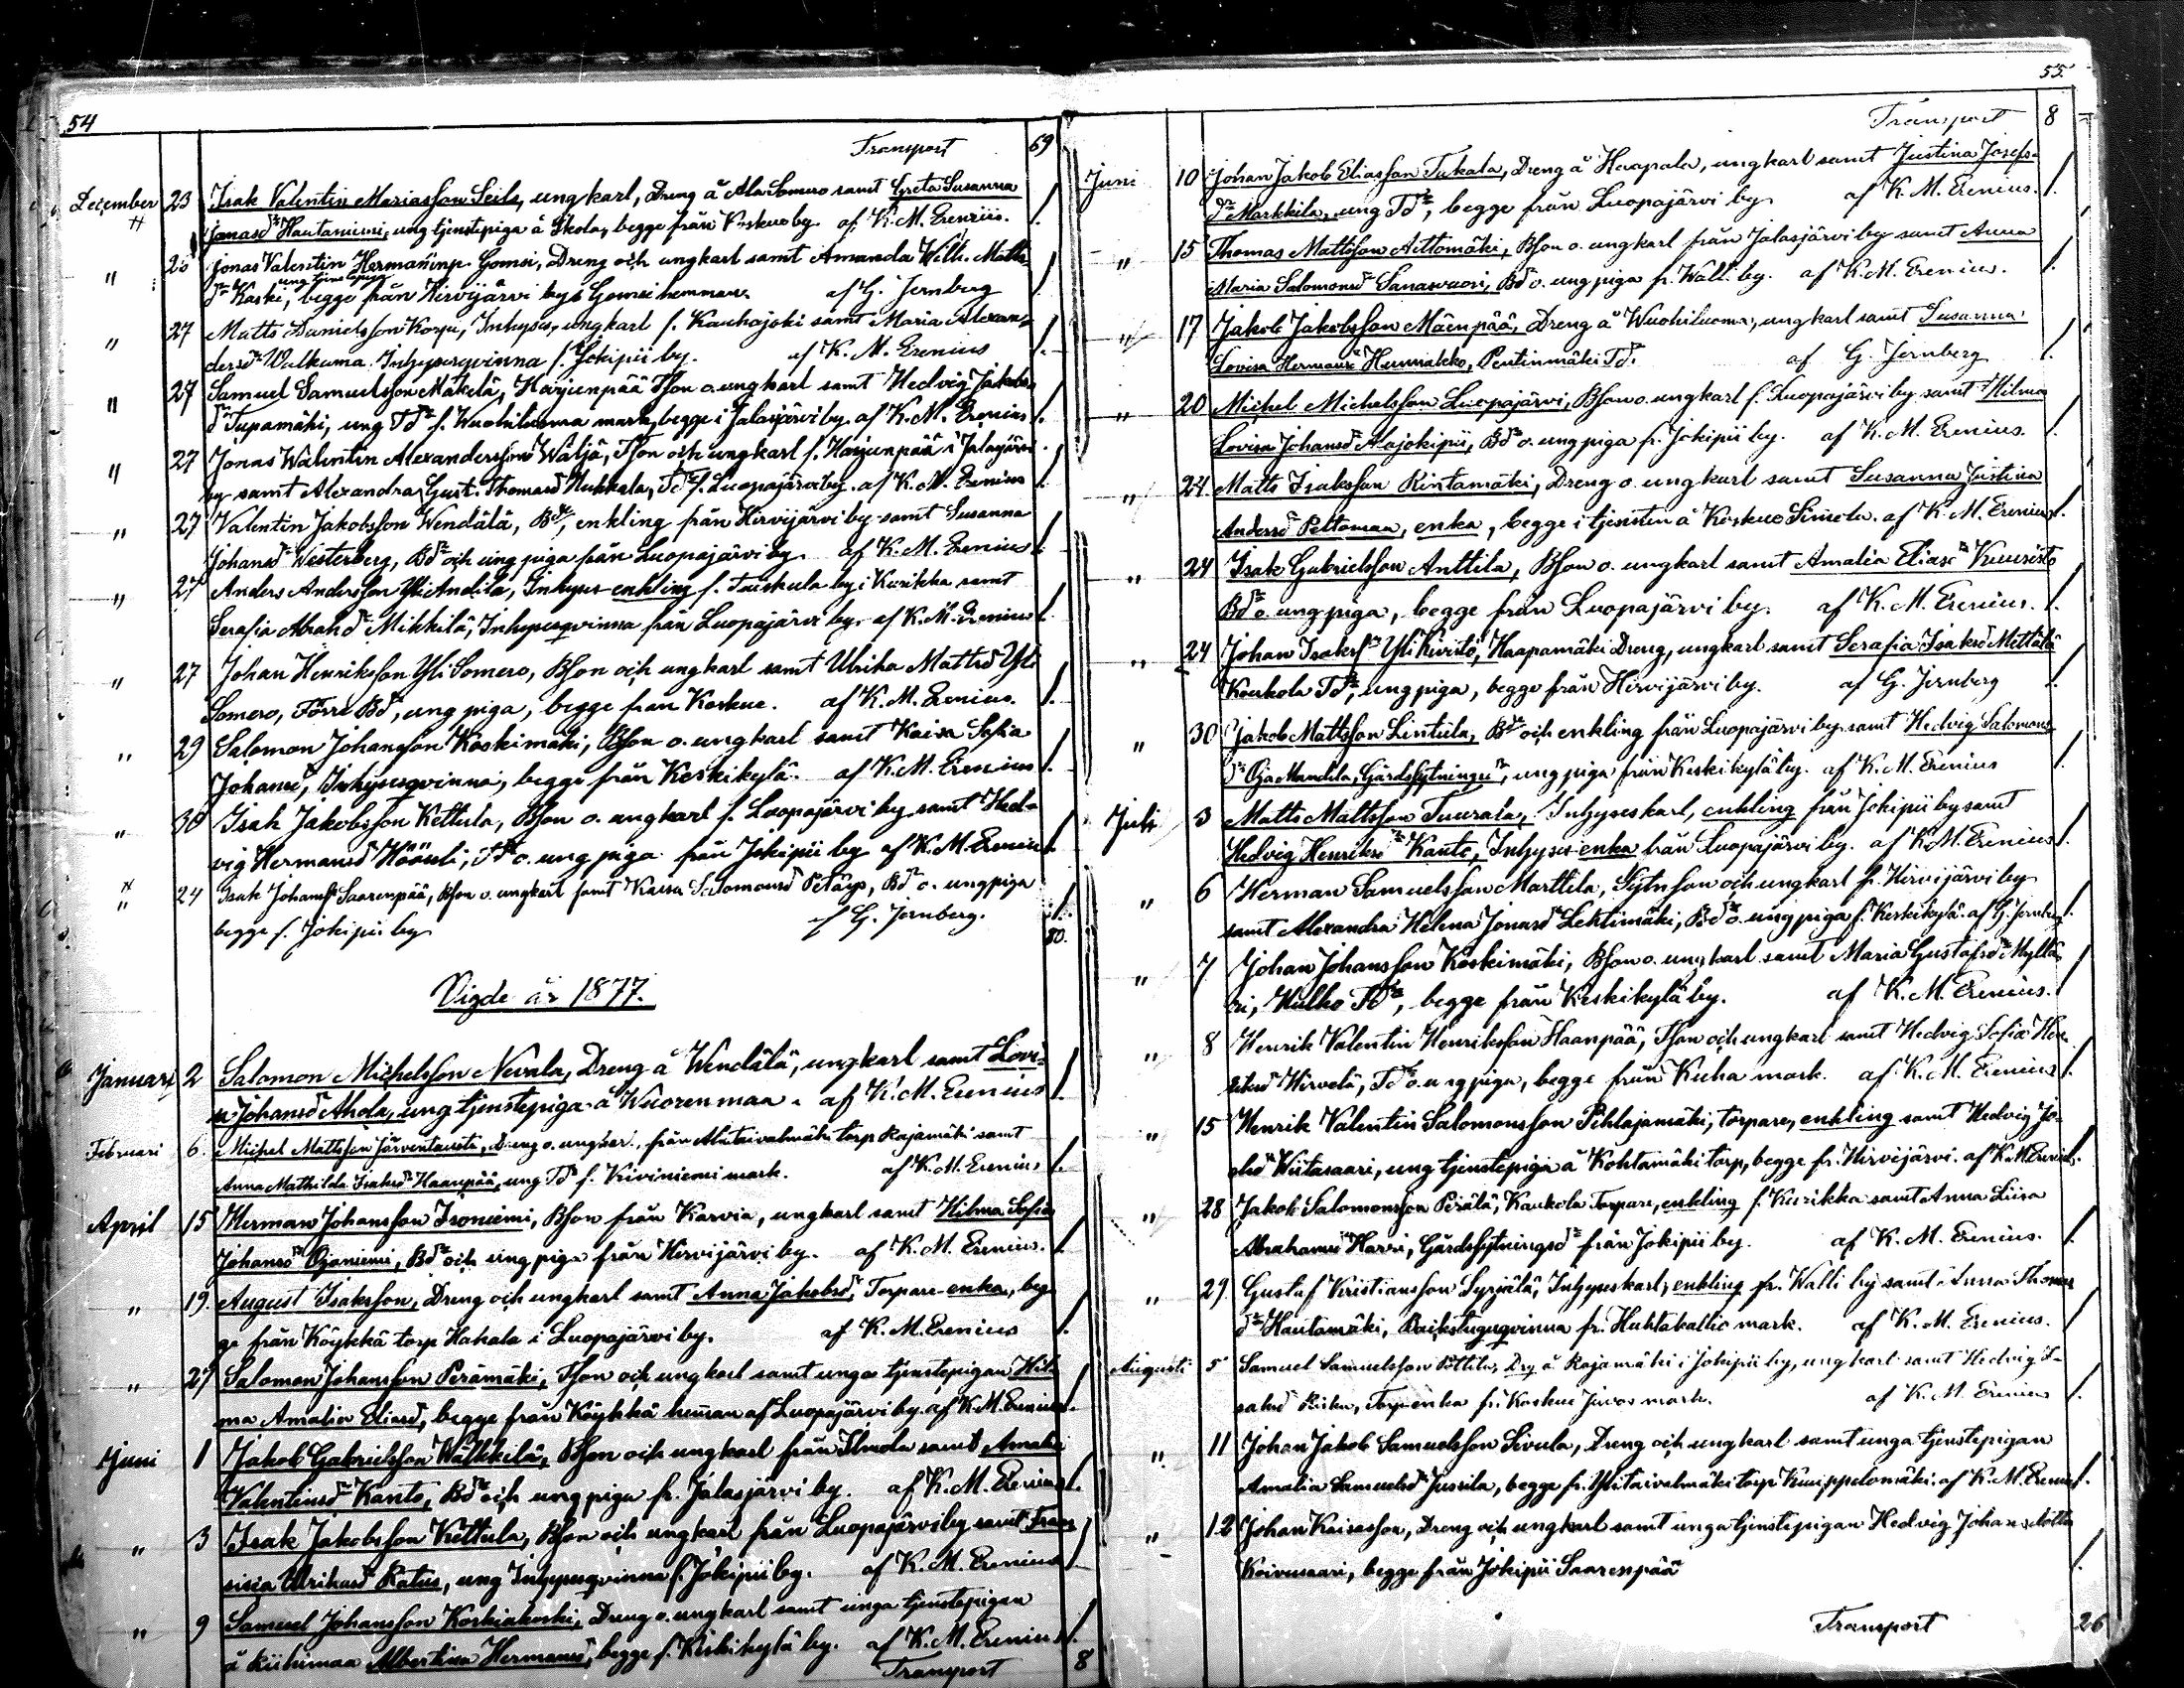 54
Transport 69
December 23 Isak Valentin Mariasson Seils, ungkarl, Dreng å Ala Somero samt Greta Susanna
Jonasdr Hautaniemi, ung tjenstepiga å Skola, begge från Koskue by. af K. M. Erenius. 1.
" 26 Jonas Valentin Hermaninp. Gomsi, Dreng och ungkarl samt Amanda Wilh. Matts-
dr Kaski, ung tjenstepiga begge från Hirvijärvi by & Gomsi hemman. af G. Jernberg 1.
" 27 Matts Danielsson Korpu, Inhyses, ungkarl f. Kauhajoki samt Maria Alexan-
dersdr Walkama Inhysesqvinna f. Jokipii by. af K. M. Erenius 1.
" 27 Samuel Samuelsson Mäkelä, Harjunpää Tson o. ungkarl samt Hedvig Jakobs-
dr Tupamäki, ung Tdr f. Wuohiluoma mark, begge i Jalasjärvi by. af K. M. Erenius 1.
" 27 Jonas Walentin Alexandersson Wäljä, Tson och ungkarl f. Harjunpää i Jalasjärvi
by samt Alexandra Gust. Thomasdr Hukkala, Tdr f. Luopajärvi by. af K. M. Erenius 1.
" 27 Valentin Jakobsson Wendälä, Bde, enkling från Hirvijärvi by samt Susanna
Johansdr Westerberg, Bdr och ung piga från Luopajärvi by. af K. M. Erenius 1.
" 27 Anders Andersson Yli Andila, Inhyses enkling f. Tuiskula by i Kurikka samt
Serafia Abrahdr Mikkilä, Inhysesqvinna från Luopajärvi by. af K. M. Erenius 1.
" 27 Johan Henriksson Yli Somero, Bson och ungkarl samt Ulrika Mattsdr Yli
Somero, Förre Bdr, ung piga, begge från Koskue. af K. M. Erenius. 1.
" 29 Salomon Johansson Koskimäki, Bson o. ungkarl samt Kaisa Sofia
Johansdr, Inhysesqvinna, begge från Keskikylä. af K. M. Erenius 1.
" 30 Isak Jakobsson Kettula, Bson o. ungkarl f. Luopajärvi by samt Hed-
vig Hermansdr Köönli, Tdr o. ung piga från Jokipii by af K. M. Erenius 1.
" 24 Isak Johanss. Saarenpää, Bson o. ungkarl samt Kaisa Salomonsdr Petäys, Bdr o. ung piga
begge f. Jokipii by af G. Jernberg. 1.
80.
Vigde år 1877.
Januari 2 Salomon Michelsson Nevala, Dreng å Wendälä, ungkarl samt Lovi-
sa Johansdr Ahola, ung tjenstepiga å Wuorenmaa. af K. M. Erenius 1.
Februari 6. Michel Mattsson Järventausta, Dreng o. ungkarl, från Alataivalmäki torp Rajamäki samt
Anna Mathilda Isaksdr Haanpää, ung Tdr f. Kiviniemi mark. af K. M. Erenius 1.
April 15 Herman Johansson Isoniemi, Bson från Karvia, ungkarl samt Hilma Sofia
Johansdr Ojaniemi, Bdr och ung piga från Hirvijärvi by. af K. M. Erenius. 1.
" 19. August Isaksson, Dreng och ungkarl samt Anna Jakobsdr, Torpare-enka, beg-
ge från Köykkä torp Hakala i Luopajärvi by. af K. M. Erenius 1.
" 27 Salomon Johansson Perämäki, Tson och ungkarl samt unga tjenstepigan Hil-
ma Amalia Eliasdr, begge från Köykkä hemman af Luopajärvi by. af K. M. Erenius 1.
Juni 1 Jakob Gabrielsson Wälkkilä, Bson och ungkarl från Ilmola samt Amalia
Valentinsdr Kanto, Bdr och ung piga fr. Jalasjärvi by. af K. M. Erenius 1.
" 3 Isak Jakobsson Kettula, Bson och ungkarl från Luopajärvi by samt Fran-
sisia Ulrikasdr Ratus, ung Inhysesqvinna f. Jokipii by. af K. M. Erenius 1.
" 9 Samuel Johansson Koskiakoski, Dreng o. ungkarl samt unga tjenstepigan
å Kiilumaa Albertina Hermansdr, begge f. Keskikylä by. af K. M. Erenius 1.
Transport 8
55.
Transport 8
Juni 10 Johan Jakob Eliasson Tukala, Dreng å Haapala, ungkarl samt Justina Josefs-
dr Markkila, ung Tdr, begge från Luopajärvi by af K. M. Erenius. 1.
" 15 Thomas Mattsson Aittomäki, Bson o. ungkarl från Jalasjärvi by samt Anna
Maria Salomonsdr Sanasvuori, Bdr o. ung piga fr. Walli by. af K. M. Erenius. 1.
" 17 Jakob Jakobsson Mäenpää, Dreng å Wuohiluoma, ungkarl samt Susanna
Lovisa Hermansdr Hunnakko, Pentinmäki Tdr. af G. Jernberg 1.
" 20 Michel Michelsson Luopajärvi, Bson o. ungkarl f. Luopajärvi by samt Hilma
Lovisa Johansdr Alajokipii, Bdr o. ung piga fr. Jokipii by. af K. M. Erenius. 1.
" 24 Matts Isaksson Rintamäki, Dreng o. ungkarl samt Susanna Justina
Andersdr Peltomaa, enka, begge i tjensten å Koskue Simola. af K. M. Erenius 1.
" 24 Isak Gabrielsson Anttila, Bson o. ungkarl samt Amalia Eliasdr Kuuristo
Bdr o. ung piga, begge från Luopajärvi by. af K. M. Erenius. 1.
" 24 Johan Isakss. Yli Kuristo, Haapamäki Dreng, ungkarl samt Serafia Isaksdr Mettälä
Koukola Tdr, ung piga, begge från Hirvijärvi by. af G. Jernberg 1.
" 30 Jakob Mattsson Lintula, Bde och enkling från Luopajärvi by samt Hedvig Salomons-
dr Oja Mandila, Gårdsfytningsdr, ung piga från Keskikylä by. af K. M. Erenius 1.
Juli 3 Matts Mattsson Tuurala, Inhyseskarl, enkling från Jokipii by samt
Hedvig Henriksdr Kanto, Inhyses enka från Luopajärvi by. af K. M. Erenius 1.
" 6 Herman Samuelsson Marttila, Sytnson och ungkarl fr. Hirvijärvi by
samt Alexandra Helena Jonasdr Lehtimäki, Bdr o. ung piga f. Keskikylä. af G. Jernberg 1.
" 7 Johan Johansson Koskimäki, Bson o. ungkarl samt Maria Gustafsdr Myllä-
ri, Hulko Tdr, begge från Keskikylä by. af K. M. Erenius. 1.
" 8 Henrik Valentin Henriksson Haanpää, Tson och ungkarl samt Hedvig Sofia Hen-
riksdr Hirvelä, Tdr o. ung piga, begge från Kuha mark. af K. M. Erenius 1.
" 15 Henrik Valentin Salomonsson Pihlajamäki, torpare, enkling samt Hedvig Jo-
elsdr Wiitasaari, ung tjenstepiga å Kohtamäki torp, begge fr. Hirvijärvi. af K. M. Erenius 1.
" 28 Jakob Salomonsson Perälä, Kaukola Torpare, enkling f. Kurikka samt Anna Liisa
Abrahamsdr Harri, Gårdsfytningsdr från Jokipii by. af K. M. Erenius. 1.
" 29. Gustaf Kristiansson Syrjälä, Inhyseskarl, enkling fr. Walli by samt Anna Thomas-
dr Hautamäki, Backstuguqvinna fr. Huhtakallio mark. af K. M. Erenius. 1.
Augusti 5 Samuel Samuelsson Pottila, Drg å Rajamäki i Jokipii by, ungkarl samt Hedvig I-
saksdr Risku, Torp. enka fr. Koskue Juvas mark. af K. M. Erenius 1.
" 11 Johan Jakob Samuelsson Sivula, Dreng och ungkarl samt unga tjenstepigan
Amalia Samuelsdr Jussila, begge fr. Ylitaivalmäki torp Kuippolamäki. af K. M. Erenius 1.
" 12 Johan Kaisasson, Dreng och ungkarl samt unga tjenstepigan Hedvig Johansdotter
Koivusaari, begge från Jokipii Saarenpää 1.
Transport 26